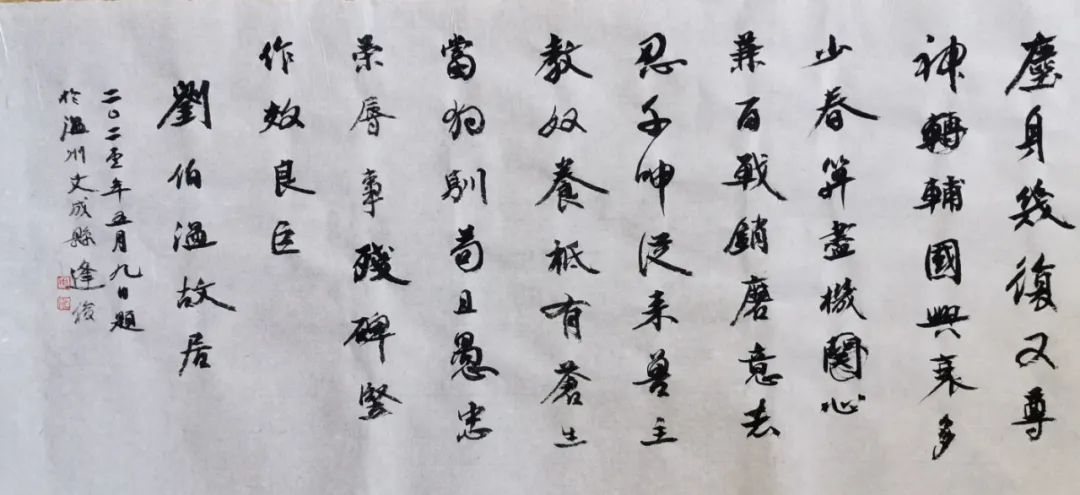 塵身幾復又尊
神轉輔國興衰多
少春算盡機關心
兼百戰銷磨意志
忍千呻從来兽主
教奴養祗有蒼生
當狗馴苟且愚忠
榮辱事殘碑竪
作效良臣
劉伯溫故居
二〇二壹年五月九日題
於溫州文成縣 逢俊